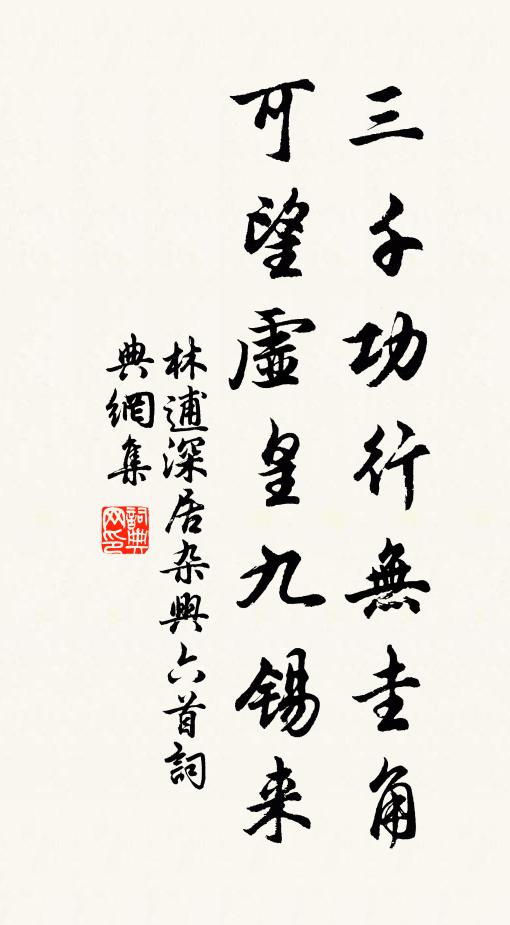 三千功行無圭角
可望虛皇九锡来
林逋深居杂興六首詞
典網集
詞典网印